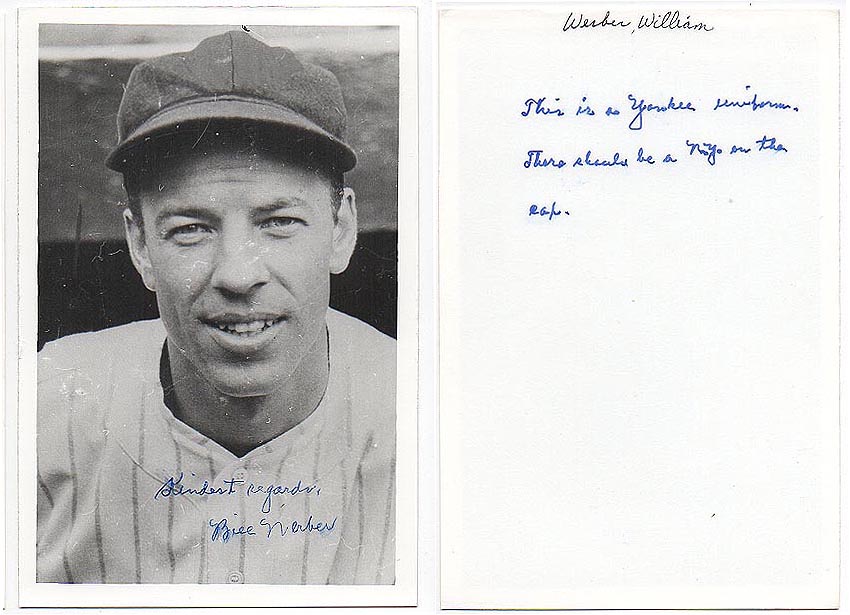 Kindest regards,
Bill Werber
Werber, William
This is a Yankee uniform.
There should be a N.Y. on the
cap.